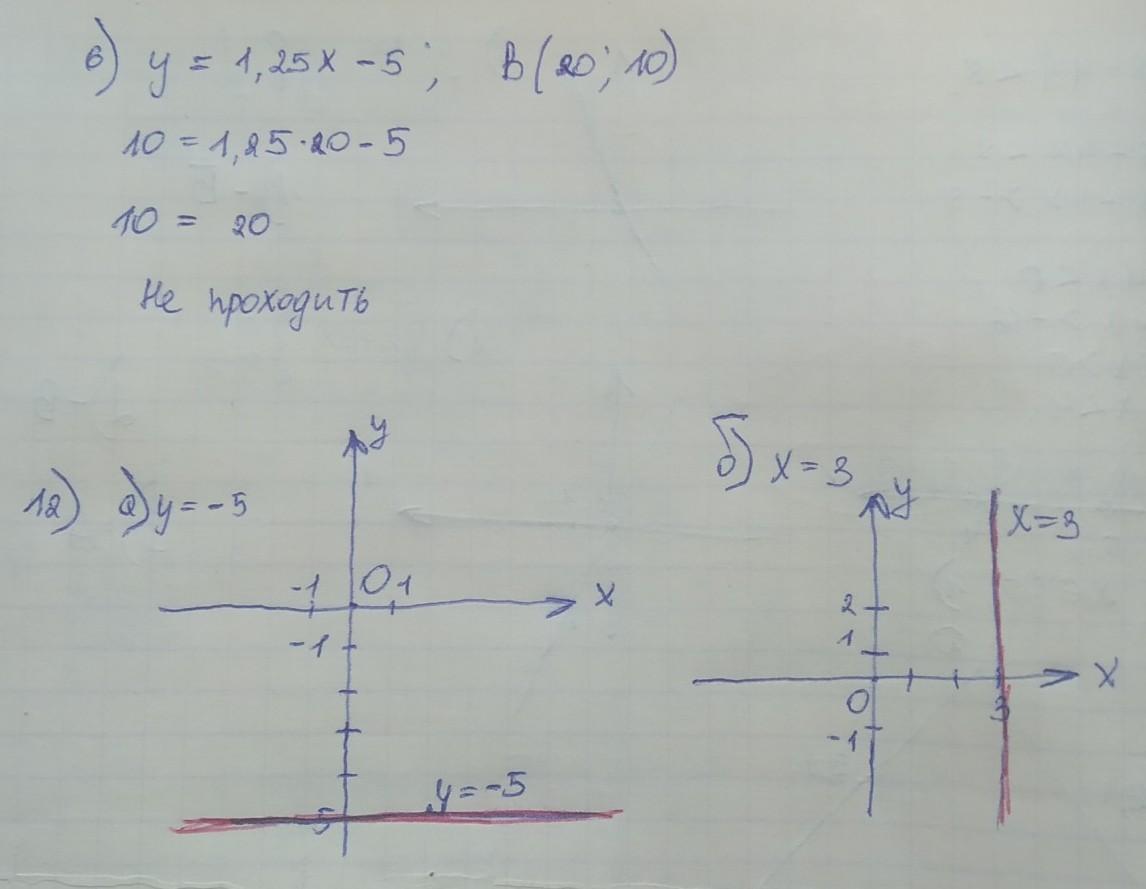 в) y = 1,25x - 5; B(20; 10)
10 = 1,25·20 - 5
10 = 20
Не проходить
12) а) y = -5
y
-1 0 1 x
-1
y = -5
-5
б) x = 3
y
x = 3
2
1
x
0 3
-1